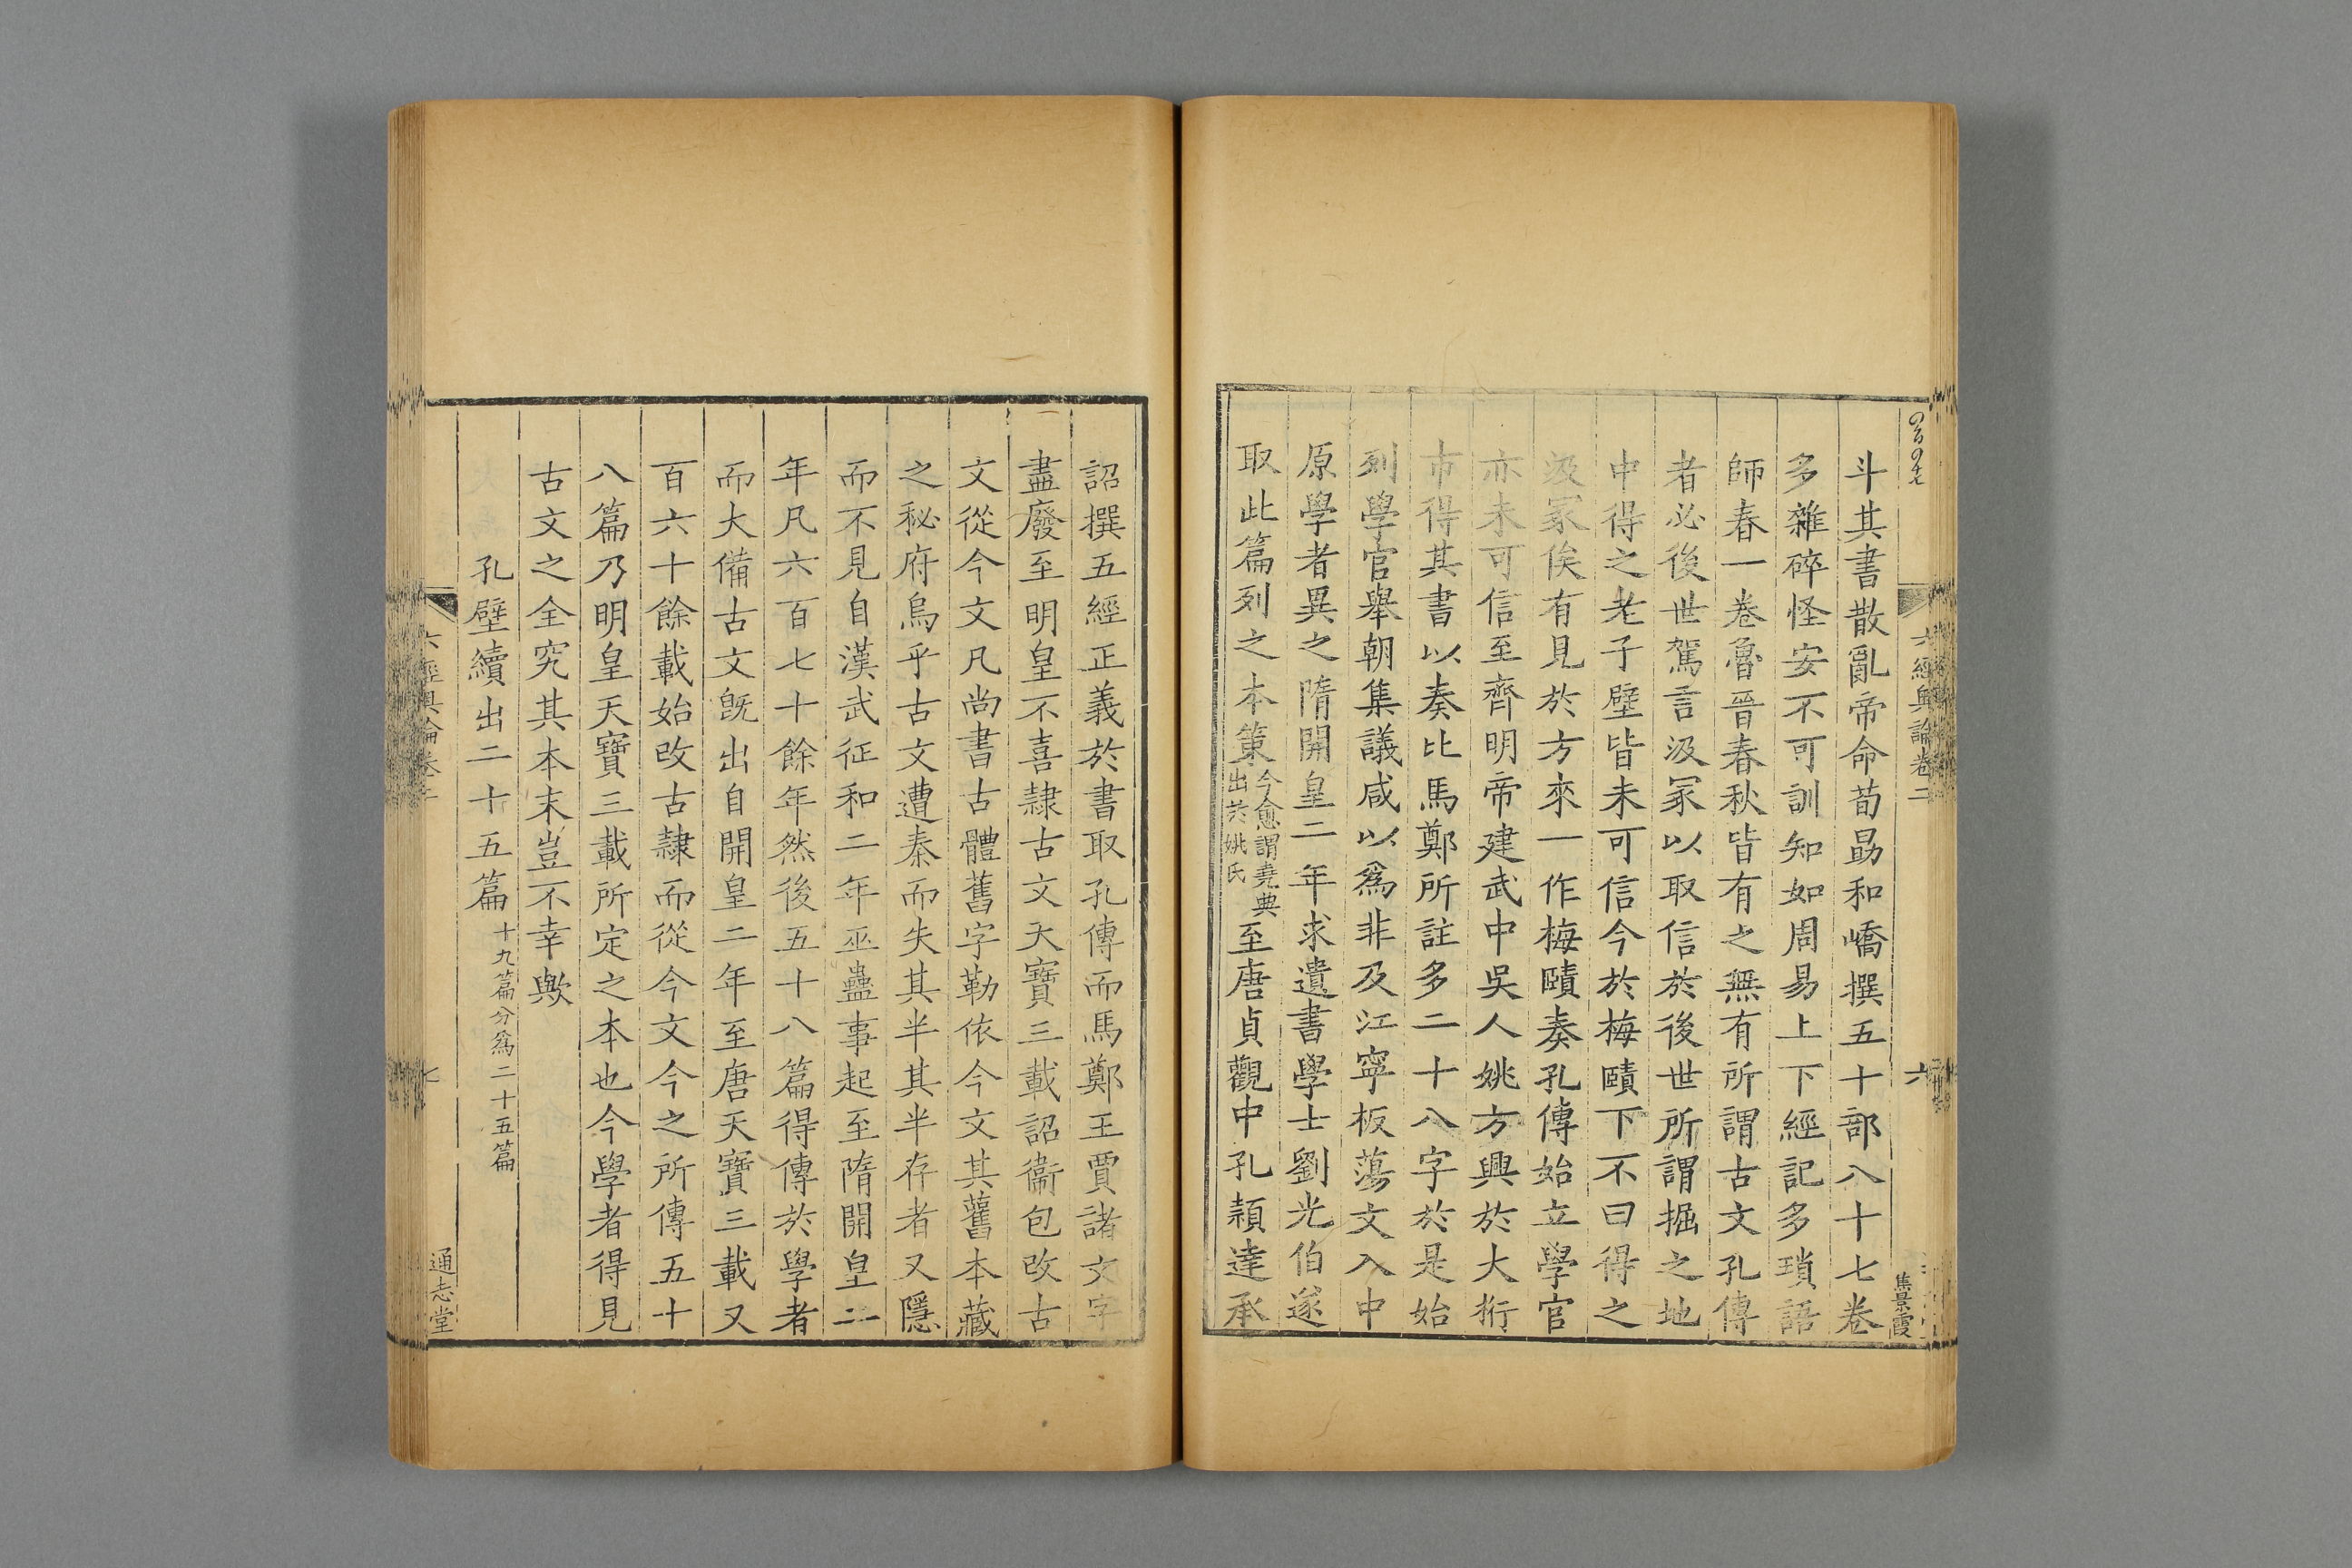 六經奧論卷二
六
焦景霞
斗其書散亂帝命荀勗和嶠撰五十部八十七卷
多雜碎怪妄不可訓知如周易上下經記多瑣語
師春一卷魯晉春秋皆有之無有所謂古文孔傳
者必後世駕言汲冢以取信於後世所謂掘之地
中得之老子壁皆未可信今於梅賾下不曰得之
汲冢俟有見於方來一作梅賾奏孔傳始立學官
亦未可信至齊明帝建武中吳人姚方興於大桁
市得其書以奏比馬鄭所註多二十八字於是始
列學官舉朝集議咸以爲非及江寧板蕩文入中
原學者異之隋開皇二年求遺書學士劉光伯遂
取此篇列之本策今愈謂堯典出於姚氏至唐貞觀中孔穎達承
詔撰五經正義於書取孔傳而馬鄭王賈諸文字
盡廢至明皇不喜隷古文天寶三載詔衞包改古
文從今文凡尚書古體舊字勒依今文其舊本藏
之秘府烏乎古文遭秦而失其半其半存者又隱
而不見自漢武征和二年巫蠱事起至隋開皇二
年凡六百七十餘年然後五十八篇得傳於學者
而大備古文旣出自開皇二年至唐天寶三載又
百六十餘載始改古隷而從今文今之所傳五十
八篇乃明皇天寶三載所定之本也今學者得見
古文之全究其本末豈不幸歟
孔壁續出二十五篇十九篇分爲二十五篇
六經奧論卷二
七
通志堂